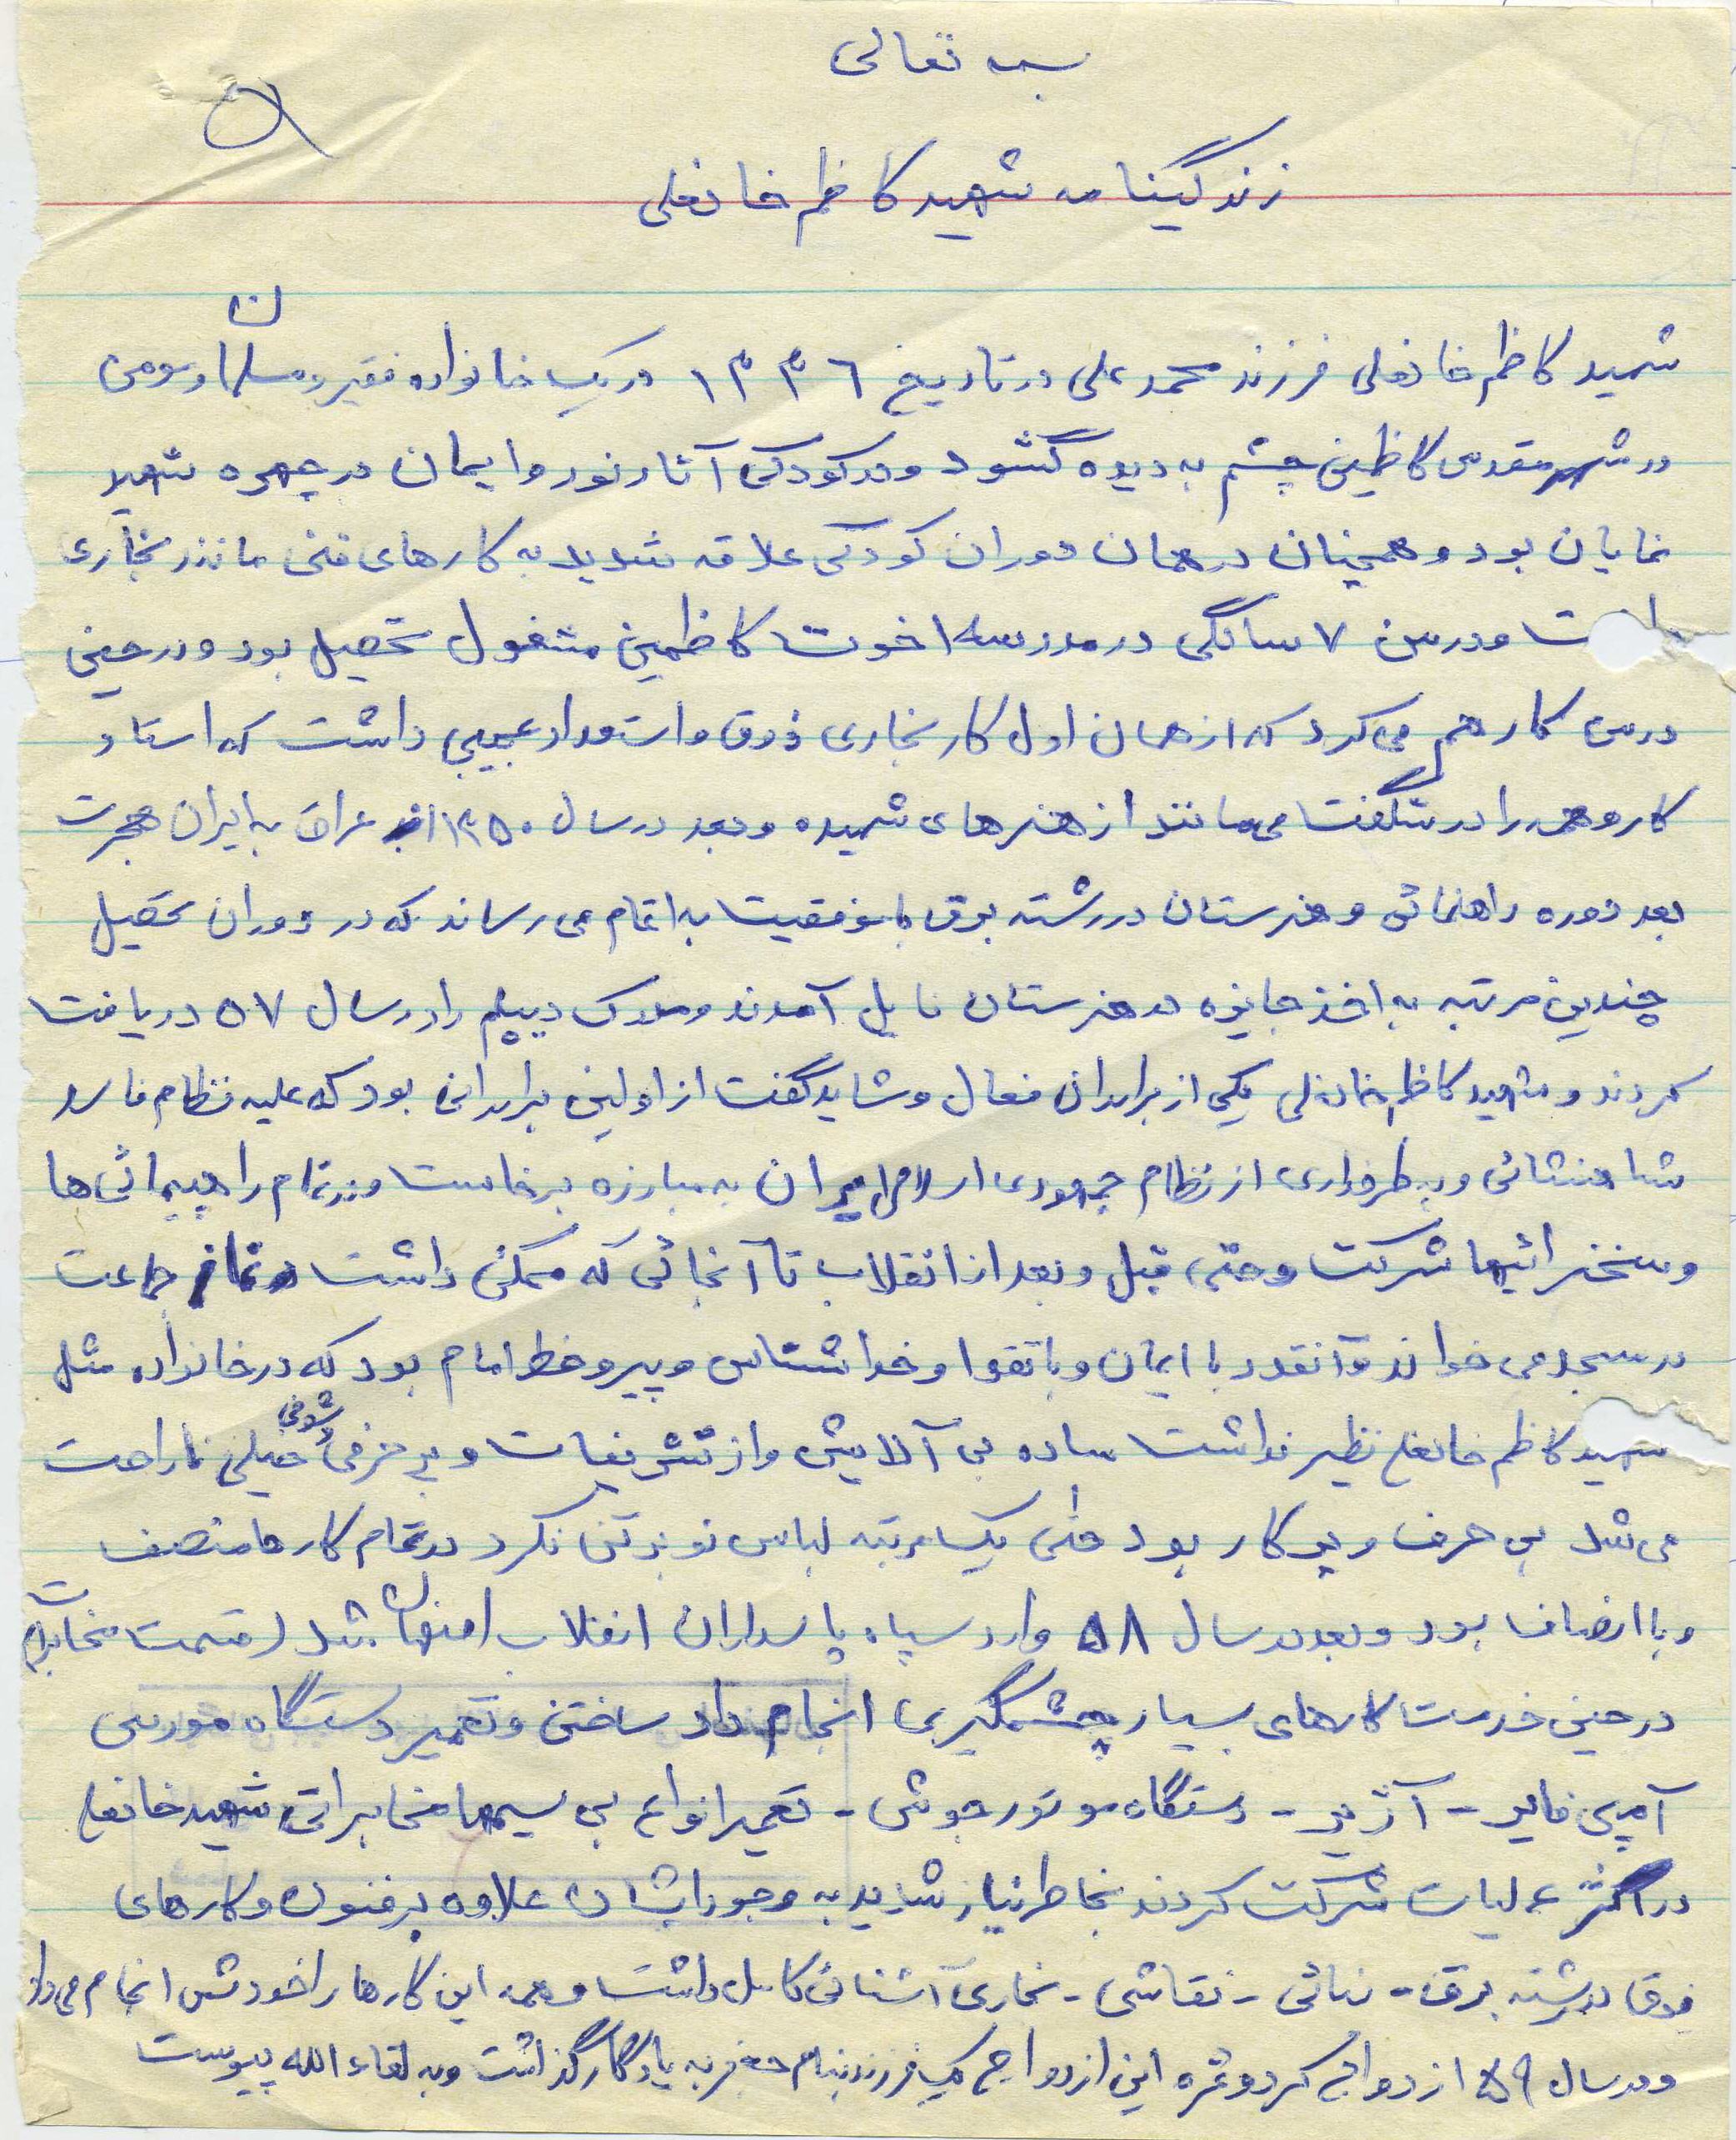 بسمه تعالی
زندگینامه شهید کاظم خانعلی
شهید کاظم خانعلی فرزند محمد علی در تاریخ ۱۳۳۶ در یک خانواده فقیر و مسلمان و مومن
در شهر مقدس کاظمین چشم به دیده گشود و در کودکی آثار نور و ایمان در چهره شهید
نمایان بود و همچنان در همان دوران کودکی علاقه شدید به کارهای فنی مانند نجاری
داشت و در سن ۷ سالگی در مدرسه اخوت کاظمین مشغول تحصیل بود و در حین
درس کار هم می کرد که از همان اول کار نجاری ذوق و استعداد عجیبی داشت که استاد
کار و همه را در شگفت می ماندند از هنرهای شهیده و بعد در سال ۱۳۵۰ از عراق به ایران هجرت
بعد دوره راهنمائی و هنرستان در رشته برق با موفقیت به اتمام می رساند که در دوران تحصیل
چندین مرتبه به اخذ جایزه در هنرستان نایل آمدند و مدرک دیپلم را در سال ۵۷ دریافت
کردند و شهید کاظم خانعلی یکی از برادران فعال و شاید گفت از اولین برادرانی بود که علیه نظام فاسد
شاهنشائی و به طرفداری از نظام جمهوری اسلامی ایران به مبارزه برخاست و در تمام راهپیمائی ها
و سخنرائیها شرکت و حتی قبل و بعد از انقلاب تا آنجائی که ممکن داشت نماز جماعت
در مسجد می خواند و آنقدر با ایمان و با تقوا و خداشناس و پیرو خط امام بود که در خانواده مثل
شهید کاظم خانعلی نظیر نداشت ساده بی آلایش و از تشریفات و پر حرفی و شوخی خیلی ناراحت
می شد بی حرف و پر کار بود حتی یک مرتبه لباس نو بر تن نکرد در تمام کارها منصف
و با انصاف بود و بعد در سال ۵۸ وارد سپاه پاسداران انقلاب اصفهان شد در قسمت مخابرات
در حین خدمت کارهای بسیار چشمگیری انجام داد ساختن و تعمیر دستگاه مورس
آمپلی فایر - آژیر - دستگاه موتور جوشی - تعمیر انواع بی سیمها مخابراتی شهید خانعلی
در اکثر عملیات شرکت کردند بخاطر نیاز شدید به وجود ایشان علاوه بر فنون و کارهای
فوق در رشته برق - بنائی - نقاشی - نجاری آشنائی کامل داشت و همه این کارها را خودش انجام می داد
و در سال ۵۹ ازدواج کرد و ثمره این ازدواج یک فرزند بنام جعفر به یادگار گذاشت و به لقاء الله پیوست